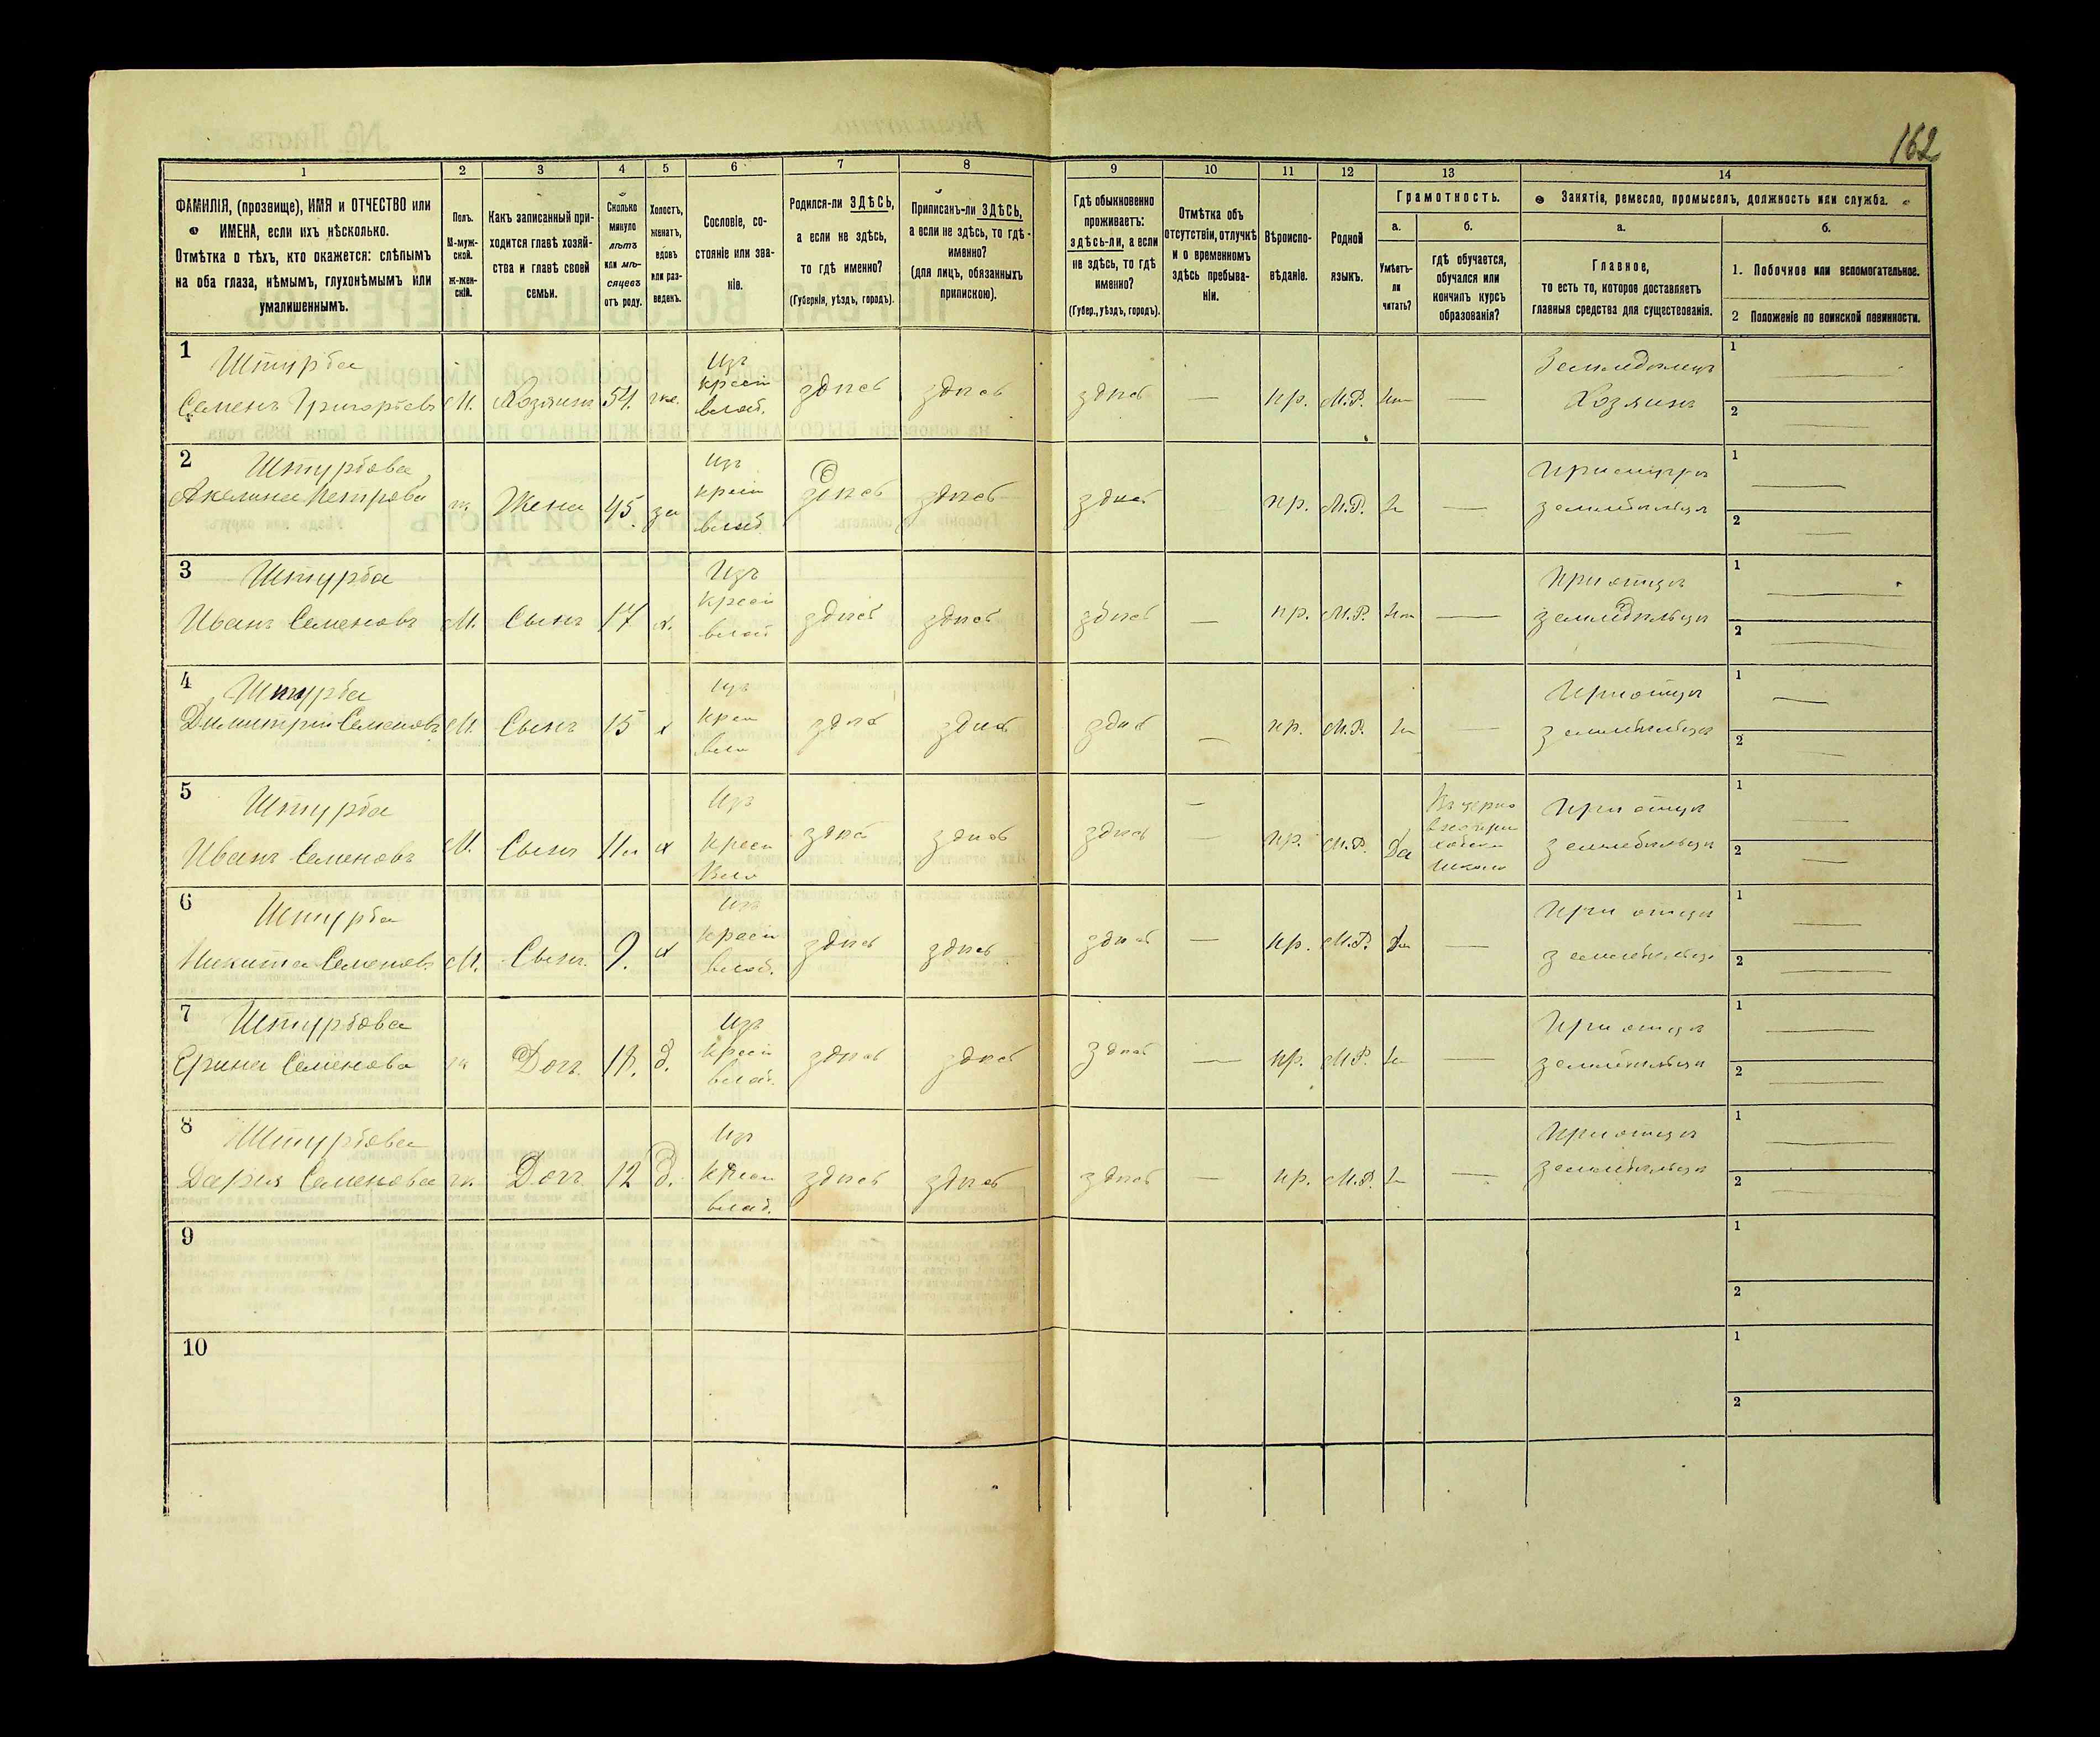 162
1
2
3
4
5
6
7
8
9
10
11
12
13
14
ФАМИЛІЯ, (прозвище), ИМЯ и ОТЧЕСТВО или
ИМЕНА, если ихъ нѣсколько.
Отмѣтка о тѣхъ, кто окажется: слѣпымъ
на оба глаза, нѣмымъ, глухонѣмымъ или
умалишеннымъ.
Полъ.
М-муж-
ской.
Ж-жен-
скій.
Какъ записанный при-
ходится главѣ хозяй-
ства и главѣ своей
семьи.
Сколько
минуло
лѣтъ
или мѣ-
сяцевъ
отъ роду.
Холостъ,
женатъ,
вдовъ
или раз-
веденъ.
Сословіе, со-
стояніе или зва-
ніе.
Родился-ли ЗДѢСЬ,
а если не здѣсь,
то гдѣ именно?
(Губернія, уѣздъ, городъ).
Приписанъ-ли ЗДѢСЬ,
а если не здѣсь, то гдѣ-
именно?
(для лицъ, обязанныхъ
припискою).
Гдѣ обыкновенно
проживаетъ:
здѣсь-ли, а если
не здѣсь, то гдѣ
именно?
(Губер., уѣздъ, городъ).
Отмѣтка объ
отсутствіи, отлучкѣ
и о временномъ
здѣсь пребыва-
ніи.
Вѣроиспо-
вѣданіе.
Родной
языкъ.
Грамотность.
а.
б.
Умѣетъ-
ли
читать?
гдѣ обучается,
обучался или
кончилъ курсъ
образованія?
Занятія, ремесло, промыселъ, должность или служба.
а.
б.
Главное,
то есть то, которое доставляетъ
главныя средства для существованія.
1. Побочное или вспомогательное.
2 Положеніе по воинской повинности.
1
Штурба
Семенъ Григорьевъ М. Хозяинъ 54. же.
Изъ
крест
влад.
здѣсь здѣсь здѣсь — пр. М.Р. —
Земледѣлецъ
Хозяинъ
1
2
2
Штурбова
Акелина Петрова ж Жена 45. за
Изъ
крест
влад.
здѣсь здѣсь здѣсь пр. М.Р. —
земледѣльца
1
2
3
Штурба
Иванъ Семеновъ М. Сынъ 17 х.
Изъ
крест
влад
здѣсь здѣсь здѣсь — пр. М.Р. —
При отцѣ
земледѣльца
1
2
4
Штурба
Димитрій Семеновъ М. Сынъ 15 х
Изъ
крес
здѣсь здѣсь здѣсь — пр. М.Р. —
При отцѣ
земледѣльца
1
2
5
Штурба
Иванъ Семеновъ М. Сынъ 11 х
Изъ
крест
здѣсь здѣсь здѣсь — пр. М.Р. Да
При отцѣ
земледѣльца
1
2
6
Штурба
Никита Семеновъ М. Сынъ. 9. х
Изъ
крест
влад.
здѣсь здѣсь здѣсь — пр. М.Р. —
При отцѣ
земледѣльца
1
2
7
Штурбова
Ерина Семенова ж Дочь 18. д.
Изъ
крест
влад.
здѣсь здѣсь здѣсь — пр. М.Р. —
При отцѣ
земледѣльца
1
2
8
Штурбова
Дарія Семенова ж. Дочь 12 д.
Изъ
крест
влад.
здѣсь здѣсь здѣсь — пр. М.Р. —
При отцѣ
земледѣльца
1
2
9
1
2
10
1
2